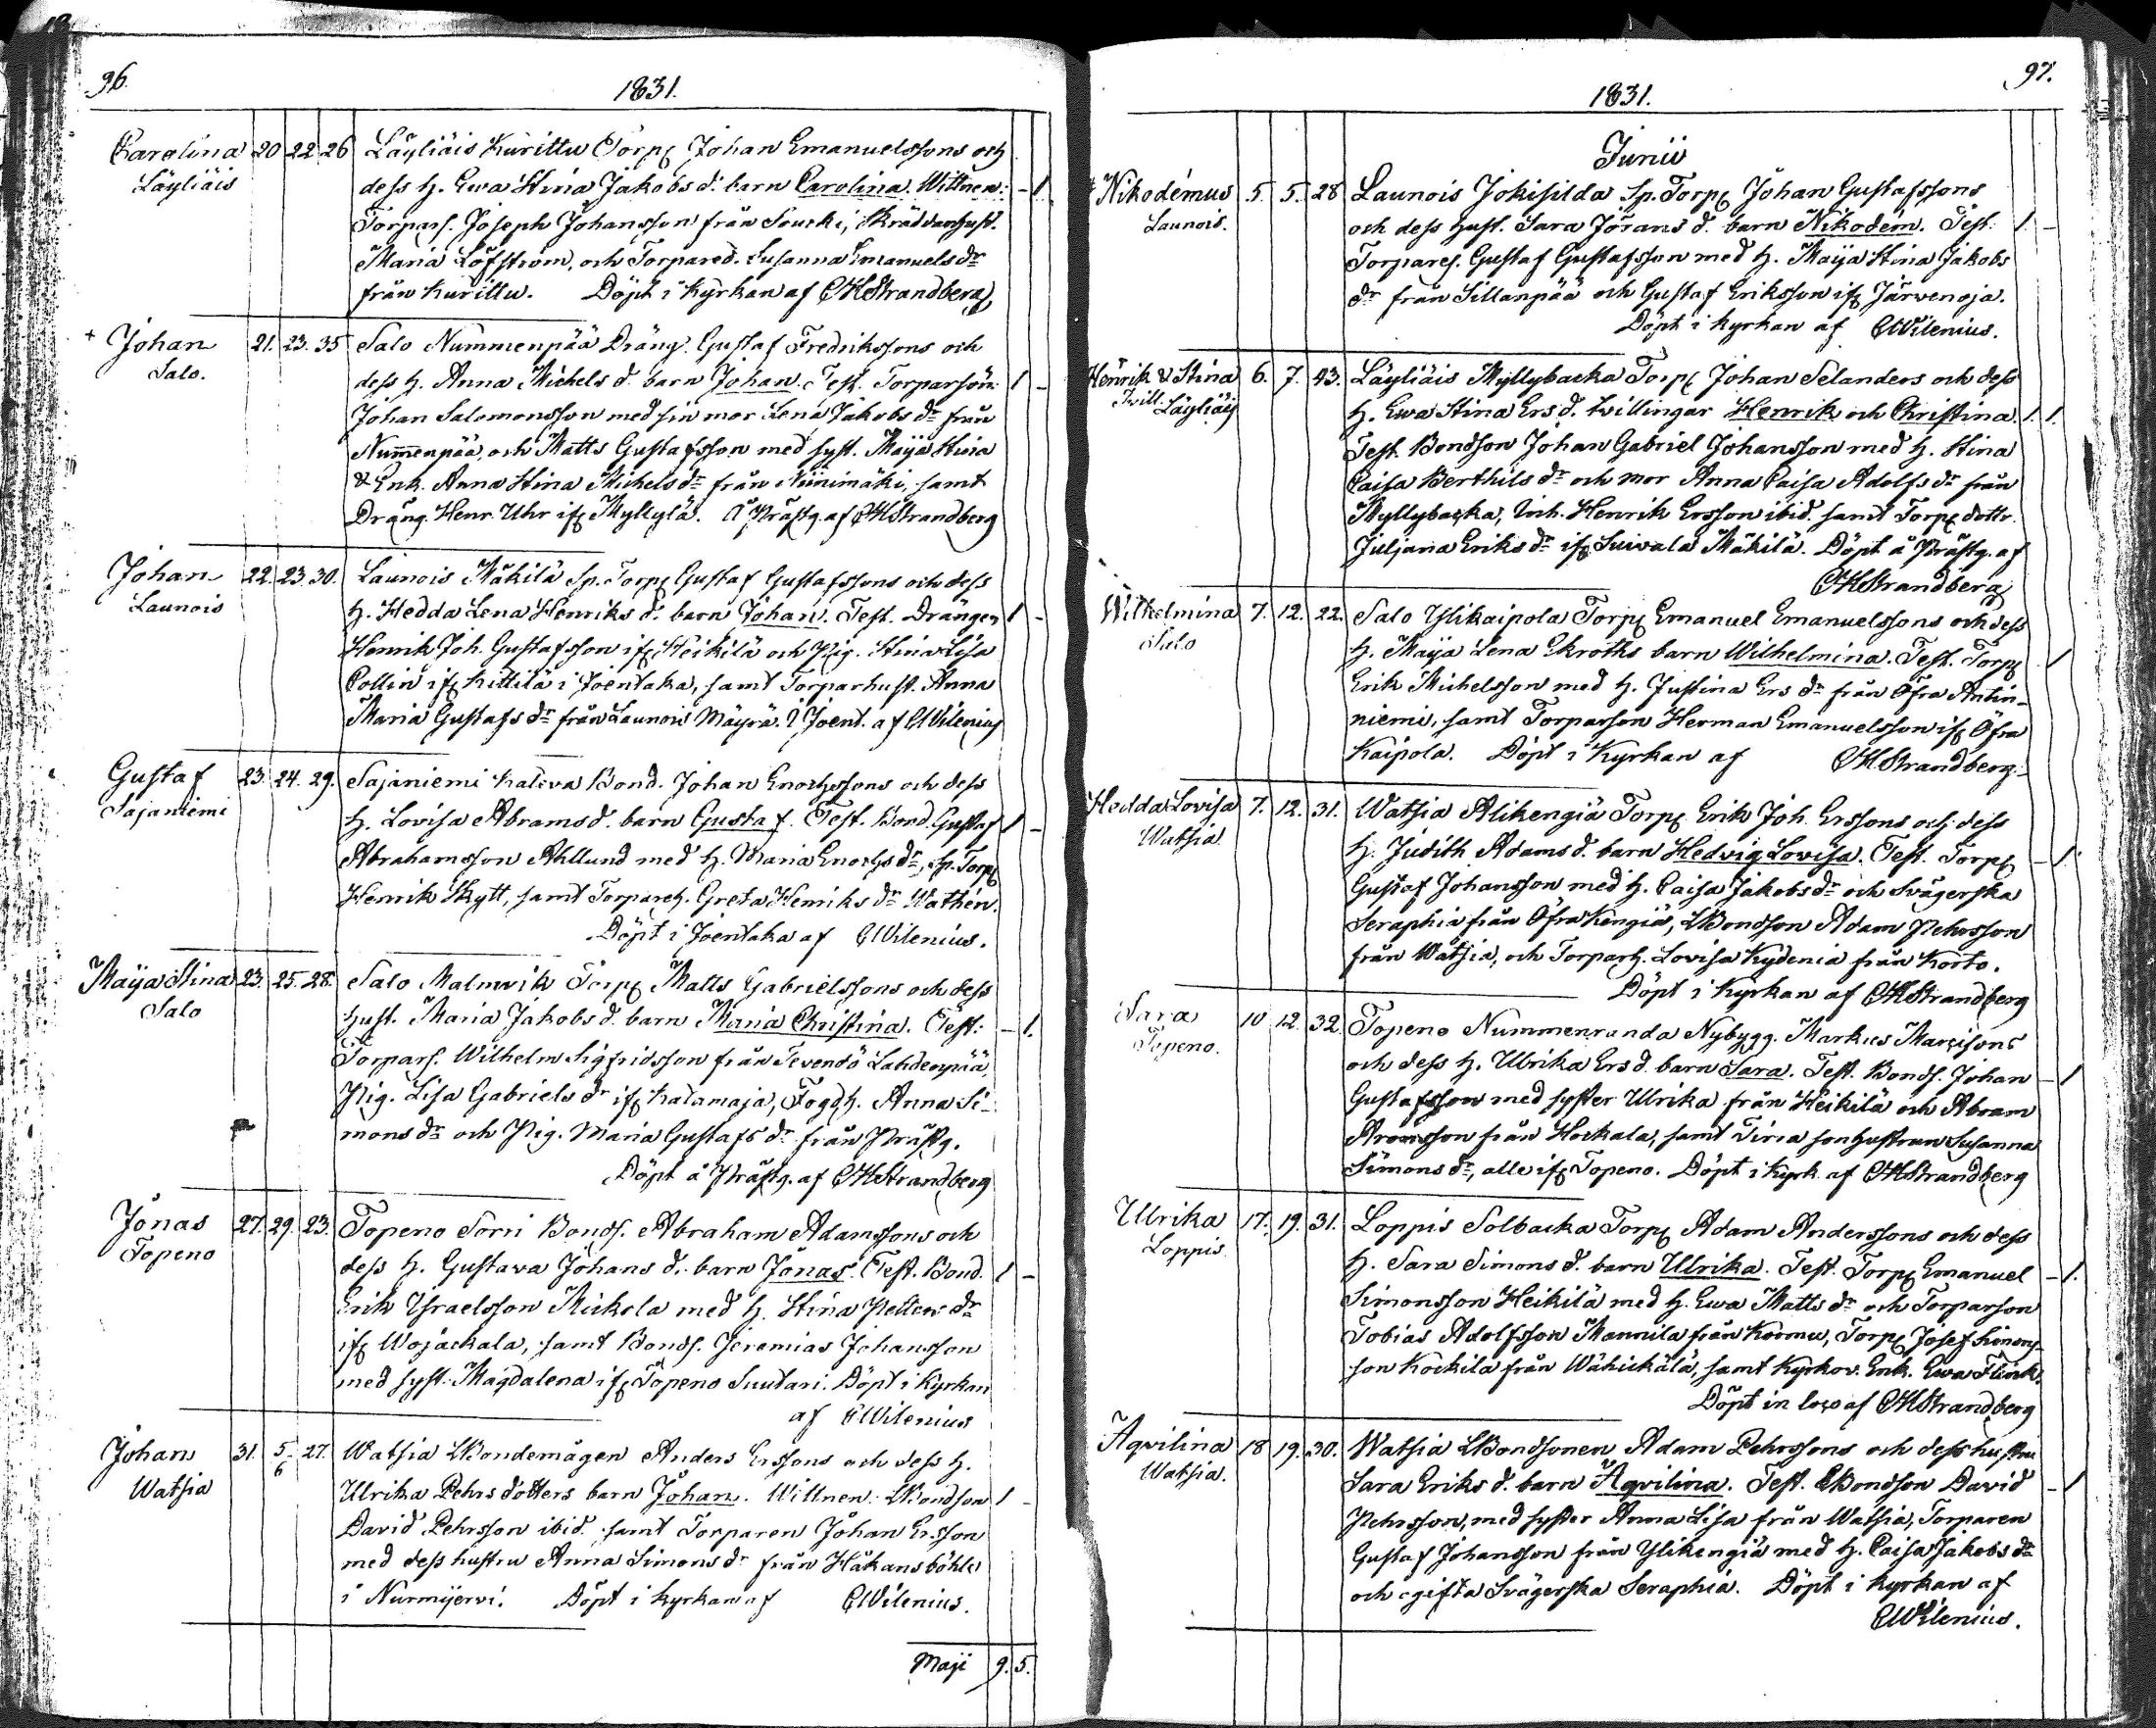 96.
1831.
Carolina 20 22 26 Läyliäis Kurittu Torp. Johan Emanuelssons och
Läyliäis dess h. Ewa Stina Jakobs d. barn Carolina. Wittnen: - 1
Torpars. Joseph Johansson från Soucki, Skräddarhust.
Maria Löfström, och Torpared. Susanna Emanuels dr
från Kurittu. Döpt i Kyrkan af CHStrandberg
+ Johan 21. 23. 35 Salo Nummenpää Dräng. Gustaf Fredrikssons och
Salo. dess h. Anna Michels d. barn Johan. Test. Torparsön. 1 -
Johan Salomonsson med sin mor Lena Jakobs dr från
Numenpää, och Matts Gustafsson med syst. Maija Stina
& Enk. Anna Stina Michels dr från Niinimäki, samt
Dräng. Henr. Uhr if. Myllylä. Å Prästg. af CHStrandberg
Johan 22. 23. 30. Launois Mäkilä Sp. Torp. Gustaf Gustafssons och dess
Launois h. Hedda Lena Henriks d. barn Johan. Test. Drängen 1 -
Henrik Joh. Gustafsson if. Heikilä och Pig. Stina Lisa
Collin if. Kittilä i Joentaka, samt Torparhust. Anna
Maria Gustafs dr från Launois Mäyrä. I Joent. af CWilenius
Gustaf 23. 24. 29. Sajaniemi Kaleva Bond. Johan Enochssons och dess
Sajaniemi h. Lovisa Abrams d. barn Gustaf. Test. Bond. Gustaf 1 -
Abrahamsson Ahllund med h. Maria Enochs dr, Sp. Torp.
Henrik Skytt, samt Torpareh. Greta Henriks dr Wathén.
Döpt i Joentaka af CWilenius.
Maija Stina 23. 25. 28. Salo Malmvik Torp. Matts Gabrielssons och dess
Salo hust. Maria Jakobs d. barn Maria Christina. Test: - 1.
Torpars. Wilhelm Sigfridsson från Tevendö Lahdenpää,
Pig. Lisa Gabriels dr if. Kalamaja, Fogdh. Anna Si-
mons dr och Pig. Maria Gustafs dr från Prästg.
Döpt å Prästg. af CHStrandberg
Jonas 27. 29. 23. Topeno Sorri Bonds. Abraham Adamssons och
Topeno dess h. Gustava Johans d. barn Jonas. Test. Bond. 1 -
Erik Ysraelsson Mickola med h. Stina Petters dr
if. Wojackala, samt Bonds. Jeremias Johansson
med syst. Magdalena if. Topeno Suutari. Döpt i Kyrkan
af CWilenius
Johan 31. 5/6. 27. Watsia LBondemågen Anders Erssons och dess h.
Watsia Ulrika Pehrs dotters barn Johan. Wittnen: LBondson 1 -
David Pehrsson ibid. samt Torparen Johan Ersson
med dess hustru Anna Simons dr från Håkansböhle
i Nurmijervi. Döpt i Kyrkan af CWilenius.
Maji 9. 5.
97.
1831.
Junii
+ Nikodémus 5. 5. 28 Launois Jokisilda Sp. Torp. Johan Gustafssons
Launois. och dess hust. Sara Jörans d. barn Nikodém. Test: 1. -
Torpares. Gustaf Gustafsson med h. Maija Stina Jakobs
dr från Sillanpää och Gustaf Eriksson if. Järvenoja.
Döpt i Kyrkan af CWilenius.
Henrik & Stina 6. 7. 43. Läyliäis Myllybacka Torp. Johan Selanders och dess
Tvill. Läyliäis h. Ewa Stina Ers d. tvillingar Henrik och Christina. 1. 1.
Test. Bondson Johan Gabriel Johansson med h. Stina
Caisa Berthils dr och mor Anna Caisa Adolfs dr från
Myllybacka, Inh. Henrik Ersson ibid. samt Torp. dottr.
Juljana Eriks dr if. Suivala Mäkilä. Döpt å Prästg. af
CHStrandberg
Wilhelmina 7. 12. 22. Salo Ylikaipola Torp. Emanuel Emanuelssons och dess
Salo h. Maija Lena Ekroths barn Wilhelmina. Test. Torp. - 1
Erik Michelsson med h. Justina Ers dr från Öfra Antin-
niemi, samt Torparson Herman Emanuelsson if. Öfra
Kaipola. Döpt i Kyrkan af CHStrandberg.
Hedda Lovisa 7. 12. 31. Watsia Alikengiä Torp. Erik Joh. Erssons och dess
Watsia h. Judith Adams d. barn Hedvig Lovisa. Test. Torp. - 1.
Gustaf Johansson med h. Caisa Jakobs dr och Svägerska
Seraphia från Öfra Kengiä, LBondson Adam Pehrsson
från Watsia, och Torparh. Lovisa Kydenia från Korto.
Döpt i Kyrkan af CHStrandberg
Sara 10 12. 32. Topeno Nummenranda Nybygg. Markus Marcisons
Topeno. och dess h. Ulrika Ers d. barn Sara. Test. Bonds. Johan - 1
Gustafsson med syster Ulrika från Heikilä och Abram
Aronsson från Hockala, samt Tiria sonhustrun Susanna
Simons dr, alle if. Topeno. Döpt i Kyrk. af CHStrandberg
Ulrika 17. 19. 31. Loppis Solbacka Torp. Adam Anderssons och dess
Loppis. h. Sara Simons d. barn Ulrika. Test. Torp. Emanuel - 1.
Simonsson Heikilä med h. Ewa Matts dr och Torparson
Tobias Adolfsson Mannila från Kormu, Torp. Josef Simons-
son Kockila från Wähickälä, samt Kyrkov. Enk. Ewa Flink.
Döpt in loco af CHStrandberg
Aqvilina 18 19. 30. Watsia LBondsonen Adam Pehrssons och dess hustru
Watsia. Sara Eriks d. barn Aqvilina. Test. LBondson David - 1
Pehrsson, med syster Anna Lisa från Watsia, Torparen
Gustaf Johansson från Ylikengiä med h. Caisa Jakobs dr
och ogifta Svägerska Seraphia. Döpt i Kyrkan af
CWilenius.